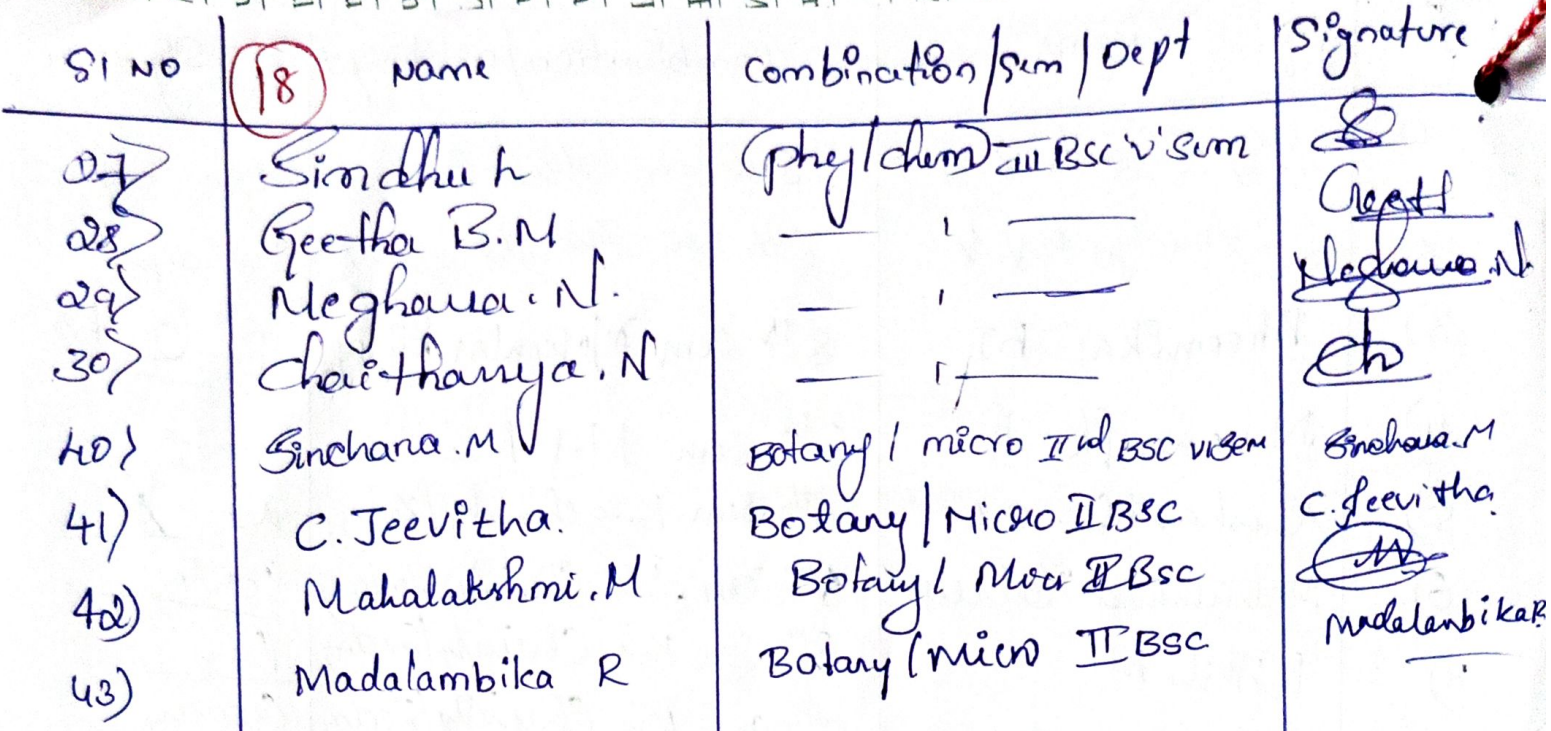 Sl NO 18 Name Combination/Sem/Dept Signature
27) Sindhu h (phy/chem) III BSC V Sem
28) Geetha B.M — ' — Geeth
29) Meghana.N. — ' — Meghana.N.
30) Chaithanya.N — ' — Ch
40) Sinchana.M Botany / micro II nd BSC VI SEM Sinchana.M
41) C.Jeevitha. Botany / Micro II BSC C.Jeevitha.
42) Mahalakshmi.M Botany / II BSC
43) Madalambika R Botany / micro II BSC MadalambikaR